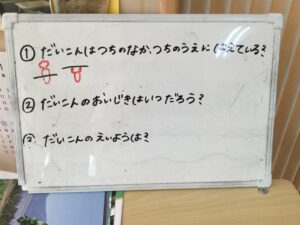 ① だいこんはつちのなか、つちのうえに はえている?
② だいこんのおいじきはいつだろう?
③ だいこんのえいようは?